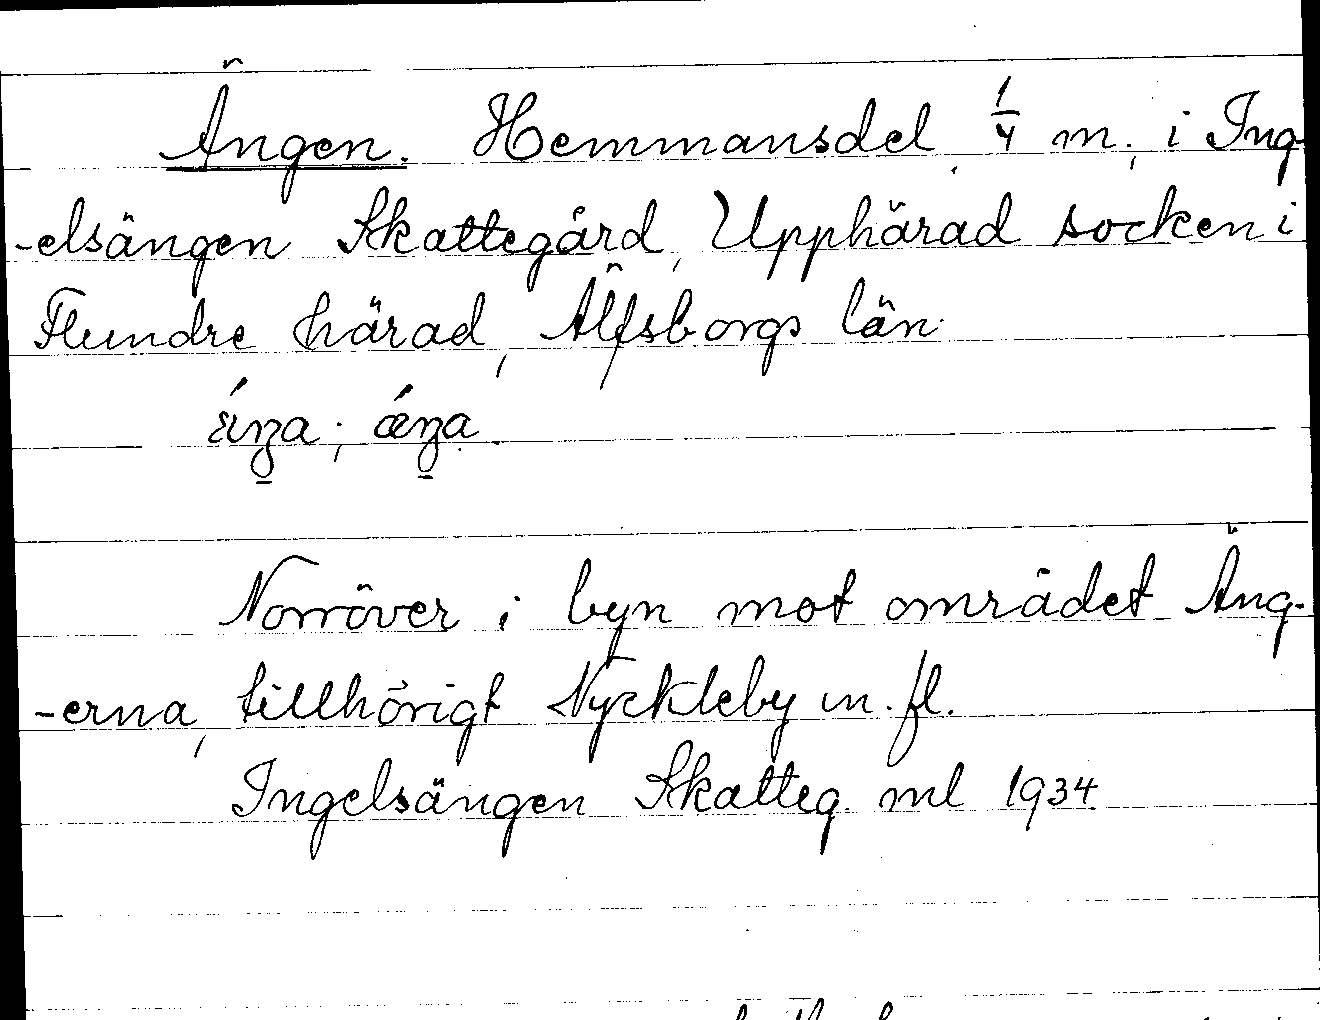 Ängen. Hemmansdel, 1/4 m., i Ing-
-elsängen Skattegård, Upphärad socken i
Flundre härad, Älfsborgs län.
Norröver i byn mot området Äng-
-erna, tillhörigt Nyckleby m. fl.
Ingelsängen Skatteg. ml 1934